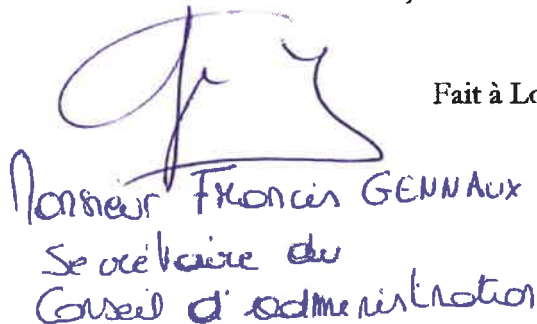 Fait à Lo
Monsieur Francis GENNAUX
Secrétaire du
Conseil d'administration